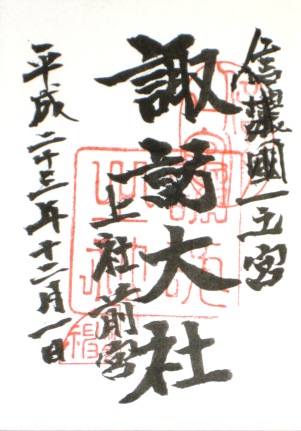 信濃國一之宮
諏訪大社
上社前宮
平成二十三年十二月一日